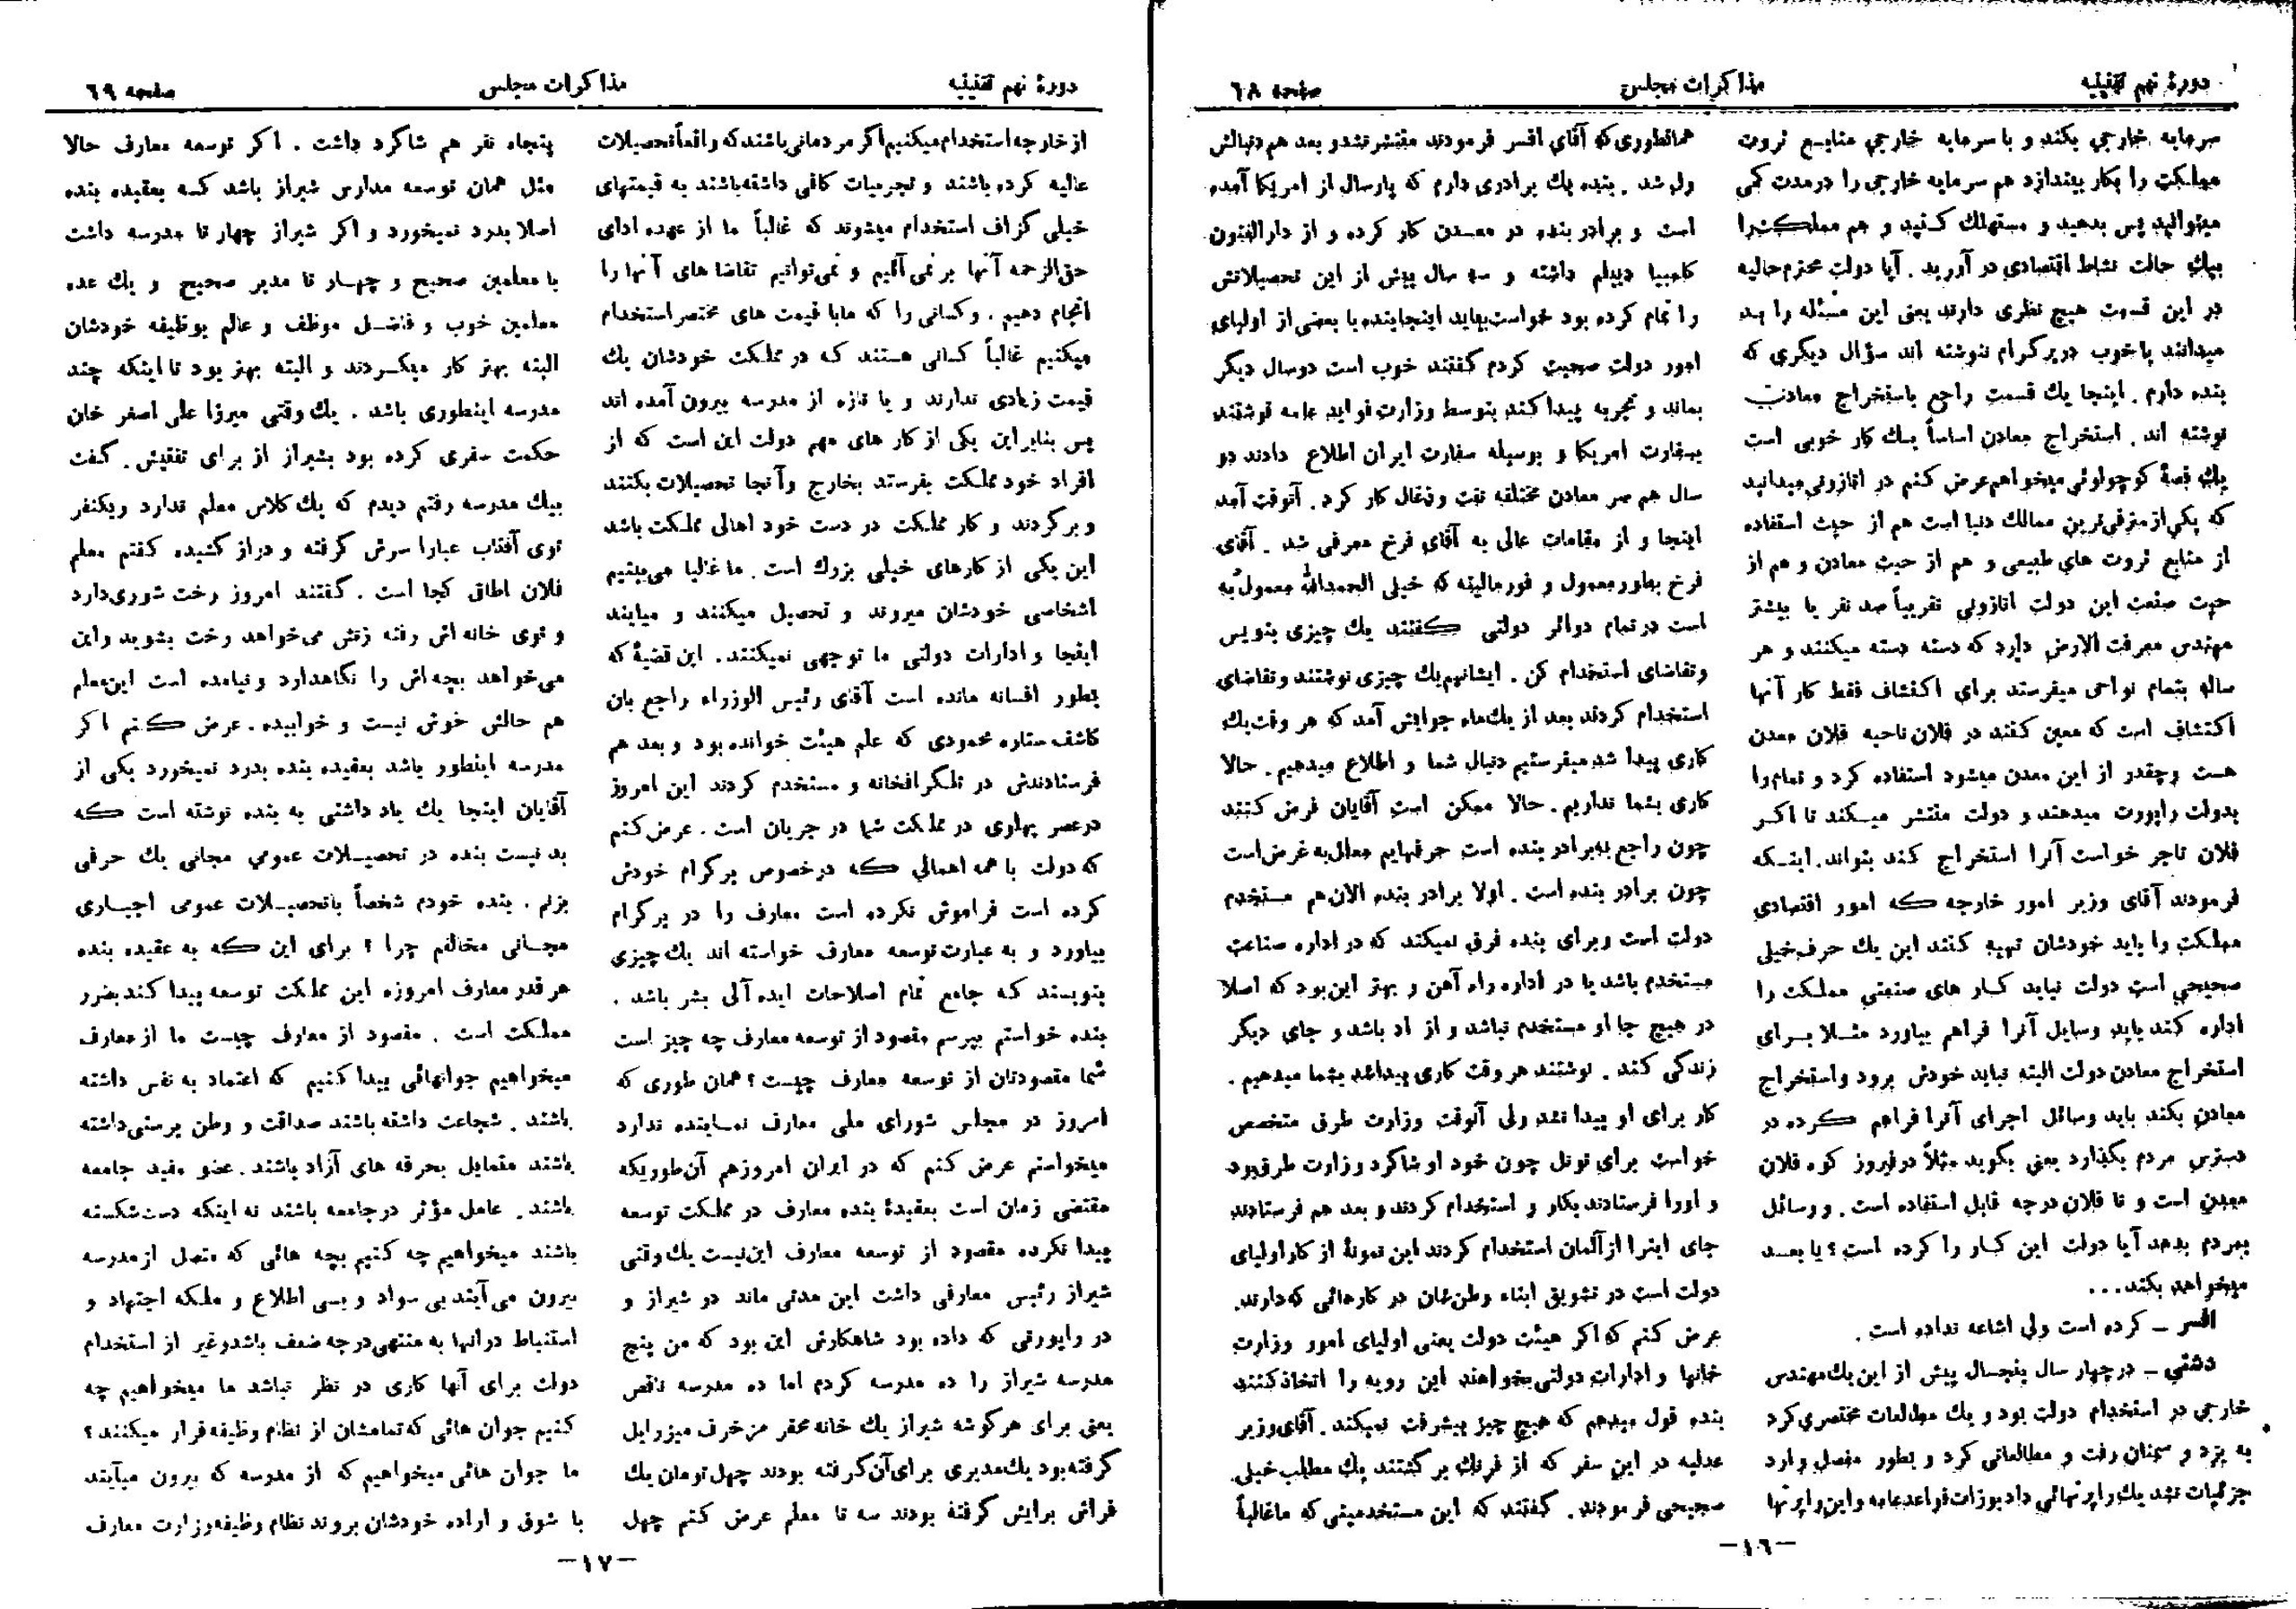 دورهٔ نهم تقنینیه
مذاکرات مجلس
صفحه ٦٨
سرمایه خارجی بکند و با سرمایه خارجی منابع ثروت
مملکت را بکار بیندازد هم سرمایه خارجی را در مدت کمی
میتوانید پس بدهید و مستهلك کنید و هم مملکت را
بیك حالت نشاط اقتصادی در آورید . آیا دولت محترم حالیه
در این قسمت هیچ نظری دارند یعنی این مسئله را بد
میدانند یا خوب در پرگرام ننوشته اند سؤال دیگری که
بنده دارم . اینجا یك قسمت راجع باستخراج معادن
نوشته اند . استخراج معادن اساساً یك کار خوبی است
یك قصهٔ کوچولوئی میخواهم عرض کنم در اتازونی میدانید
که یکی از مترقی ترین ممالك دنیا است هم از حیث استفاده
از منابع ثروت های طبیعی و هم از حیث معادن و هم از
حیث صنعت این دولت اتازونی تقریباً صد نفر یا بیشتر
مهندس معرفت الارض دارد که دسته دسته میکنند و هر
ساله بتمام نواحی میفرستد برای اکتشاف فقط کار آنها
اکتشاف است که معین کنند در فلان ناحیه فلان معدن
هست و چقدر از این معدن میشود استفاده کرد و تمام را
بدولت راپورت میدهند و دولت منتشر میکند تا اگر
فلان تاجر خواست آنرا استخراج کند بتواند . اینکه
فرمودند آقای وزیر امور خارجه که امور اقتصادی
مملکت را باید خودشان تهیه کنند این یك حرف خیلی
صحیحی است دولت نباید کار های صنعتی مملکت را
اداره کند باید وسایل آنرا فراهم بیاورد مثلا برای
استخراج معادن دولت البته نباید خودش برود و استخراج
معادن بکند باید وسائل اجرای آنرا فراهم کرده در
دسترس مردم بگذارد یعنی بگوید مثلاً در فیروز کوه فلان
معدن است و تا فلان درجه قابل استفاده است . و وسائل
بمردم بدهد آیا دولت این کار را کرده است ؟ یا بعد
میخواهد بکند...
افسر ــ کرده است ولی اشاعه نداده است .
دشتی ــ در چهار سال پنجسال پیش از این یك مهندس
خارجی در استخدام دولت بود و یك مطالعات مختصری کرد
به یزد و سمنان رفت و مطالعاتی کرد و بطور مفصل وارد
جزئیات نشد یك راپرتهائی داد بوزات فواعد عامه و این راپرتها
همانطوری که آقای افسر فرمودند منتشر نشد و بعد هم دنبالش
ول شد . بنده یك برادری دارم که پارسال از امریکا آمده
است و برادر بنده در معدن کار کرده و از دارالفنون
کلمبیا دیپلم داشته و سه سال پیش از این تحصیلاتش
را تمام کرده بود خواست بیاید اینجا بنده با بعضی از اولیای
امور دولت صحبت کردم گفتند خوب است دو سال دیگر
بماند و تجربه پیدا کند بتوسط وزارت فواید عامه نوشتند
بسفارت امریکا و بوسیله سفارت ایران اطلاع دادند دو
سال هم سر معادن مختلفه نفت و ذغال کار کرد . آنوقت آمد
اینجا و از مقامات عالی به آقای فرخ معرفی شد . آقای
فرخ بطور معمول و فورمالیته که خیلی الحمدالله معمول به
است در تمام دوائر دولتی گفتند یك چیزی بنویس
و تقاضای استخدام کن . ایشانهم یك چیزی نوشتند و تقاضای
استخدام کردند بعد از یك ماه جوابش آمد که هر وقت یك
کاری پیدا شد میفرستیم دنبال شما و اطلاع میدهیم . حالا
کاری بشما نداریم . حالا ممکن است آقایان فرض کنند
چون راجع به برادر بنده است حرفهایم معلل به غرض است
چون برادر بنده است . اولا برادر بنده الان هم مستخدم
دولت است و برای بنده فرق نمیکند که در اداره صناعت
مستخدم باشد یا در اداره راه آهن و بهتر این بود که اصلا
در هیچ جا او مستخدم نباشد و از اد باشد و جای دیگر
زندگی کند . نوشتند هر وقت کاری پیدا شد بشما میدهیم .
کار برای او پیدا نشد ولی آنوقت وزارت طرق متخصص
خواست برای تونل چون خود او شاگرد وزارت طرق بود
و اورا فرستادند بکار و استخدام کردند و بعد هم فرستادند
جای اینرا از آلمان استخدام کردند این نمونهٔ از کار اولیای
دولت است در تشویق ابناء وطن‌شان در کارهائی که دارند.
عرض کنم که اگر هیئت دولت یعنی اولیای امور وزارت
خانها و ادارات دولتی بخواهند این رویه را اتخاذ کنند
بنده قول میدهم که هیچ چیز پیشرفت نمیکند . آقای وزیر
عدلیه در این سفر که از فرنك بر گشتند یك مطلب خیلی
صحیحی فرمودند . گفتند که این مستخدمینی که ما غالباً
ــ١٦ــ
دورهٔ نهم تقنینیه
مذاکرات مجلس
صفحه ٦٩
از خارجه استخدام میکنیم اگر مردمانی باشند که واقعاً تحصیلات
عالیه کرده باشند و تجربیات کافی داشته باشند به قیمتهای
خیلی گزاف استخدام میشوند که غالباً ما از عهده ادای
حق الزحمه آنها بر نمی آئیم و نمی توانیم تقاضا های آنها را
انجام دهیم . و کسانی را که ما با قیمت های مختصر استخدام
میکنیم غالباً کسانی هستند که در مملکت خودشان یك
قیمت زیادی ندارند و یا تازه از مدرسه بیرون آمده اند
پس بنابر این یکی از کار های مهم دولت این است که از
افراد خود مملکت بفرستد بخارج و آنجا تحصیلات بکنند
و برگردند و کار مملکت در دست خود اهالی مملکت باشد
این یکی از کارهای خیلی بزرك است . ما غالبا می بینیم
اشخاصی خودشان میروند و تحصیل میکنند و میایند
اینجا و ادارات دولتی ما توجهی نمیکنند . این قضیهٔ که
بطور افسانه مانده است آقای رئیس الوزراء راجع بان
کاشف ستاره محمودی که علم هیئت خوانده بود و بعد هم
فرستادندش در تلگرافخانه و مستخدم کردند این امروز
در عصر پهلوی در مملکت شما در جریان است . عرض کنم
که دولت با همه اهمالی که در خصوص پرگرام خودش
کرده است فراموش نکرده است معارف را در پرگرام
بیاورد و به عبارت توسعه معارف خواسته اند یك چیزی
بنویسند که جامع تمام اصلاحات ایده آلی بشر باشد .
بنده خواستم بپرسم مقصود از توسعه معارف چه چیز است
شما مقصودتان از توسعه معارف چیست ؟ همان طوری که
امروز در مجلس شورای ملی معارف نماینده ندارد
میخواستم عرض کنم که در ایران امروز هم آن طوریکه
مقتضی زمان است بعقیدهٔ بنده معارف در مملکت توسعه
پیدا نکرده مقصود از توسعه معارف این نیست یك وقتی
شیراز رئیس معارفی داشت این مدتی ماند در شیراز و
در راپورتی که داده بود شاهکارش این بود که من پنج
مدرسه شیراز را ده مدرسه کردم اما ده مدرسه ناقص
یعنی برای هر گوشه شیراز یك خانه محقر مزخرف میزرایل
گرفته بود یك مدیری برای آن گرفته بودند چهل تومان یك
فراش برایش گرفتهٔ بودند سه تا معلم عرض کنم چهل
پنجاه نفر هم شاگرد داشت . اگر توسعه معارف حالا
مثل همان توسعه مدارس شیراز باشد که بعقیده بنده
اصلا بدرد نمیخورد و اگر شیراز چهار تا مدرسه داشت
با معلمین صحیح و چهار تا مدیر صحیح و یك عده
معلمین خوب و فاضل موظف و عالم بوظیفه خودشان
البته بهتر کار میکردند و البته بهتر بود تا اینکه چند
مدرسه اینطوری باشد . یك وقتی میرزا علی اصغر خان
حکمت سفری کرده بود بشیراز از برای تفتیش . گفت
بیك مدرسه رفتم دیدم که یك کلاس معلم ندارد و یکنفر
توی آفتاب عبارا سرش گرفته و دراز کشیده گفتم معلم
فلان اطاق کجا است . گفتند امروز رخت شوری دارد
و توی خانه اش رفته زنش می خواهد رخت بشوید و این
می خواهد بچه اش را نگاهدارد و نیامده است این معلم
هم حالش خوش نیست و خوابیده . عرض کنم اگر
مدرسه اینطور باشد بعقیده بنده بدرد نمیخورد یکی از
آقایان اینجا یك یاد داشتی به بنده نوشته است که
بد نیست بنده در تحصیلات عمومی مجانی یك حرفی
بزنم . بنده خودم شخصاً با تحصیلات عمومی اجباری
مجانی مخالفم چرا ؟ برای این که به عقیده بنده
هر قدر معارف امروزه این مملکت توسعه پیدا کند بضرر
مملکت است . مقصود از معارف چیست ما از معارف
میخواهیم جوانهائی پیدا کنیم که اعتماد به نفس داشته
باشند . شجاعت داشته باشند صداقت و وطن پرستی داشته
باشند متمایل بحرفه های آزاد باشند . عضو مفید جامعه
باشند . عامل مؤثر در جامعه باشند نه اینکه دست شکسته
باشند میخواهیم چه کنیم بچه هائی که متصل از مدرسه
بیرون می آیند بی سواد و بسی اطلاع و ملکه اجتهاد و
استنباط درانها به منتهی درجه ضعف باشد و غیر از استخدام
دولت برای آنها کاری در نظر نباشد ما میخواهیم چه
کنیم جوان هائی که تمامشان از نظام وظیفه فرار میکنند ؟
ما جوان هائی میخواهیم که از مدرسه که بیرون میآیند
با شوق و اراده خودشان بروند نظام وظیفه وزارت معارف
ــ١٧ــ